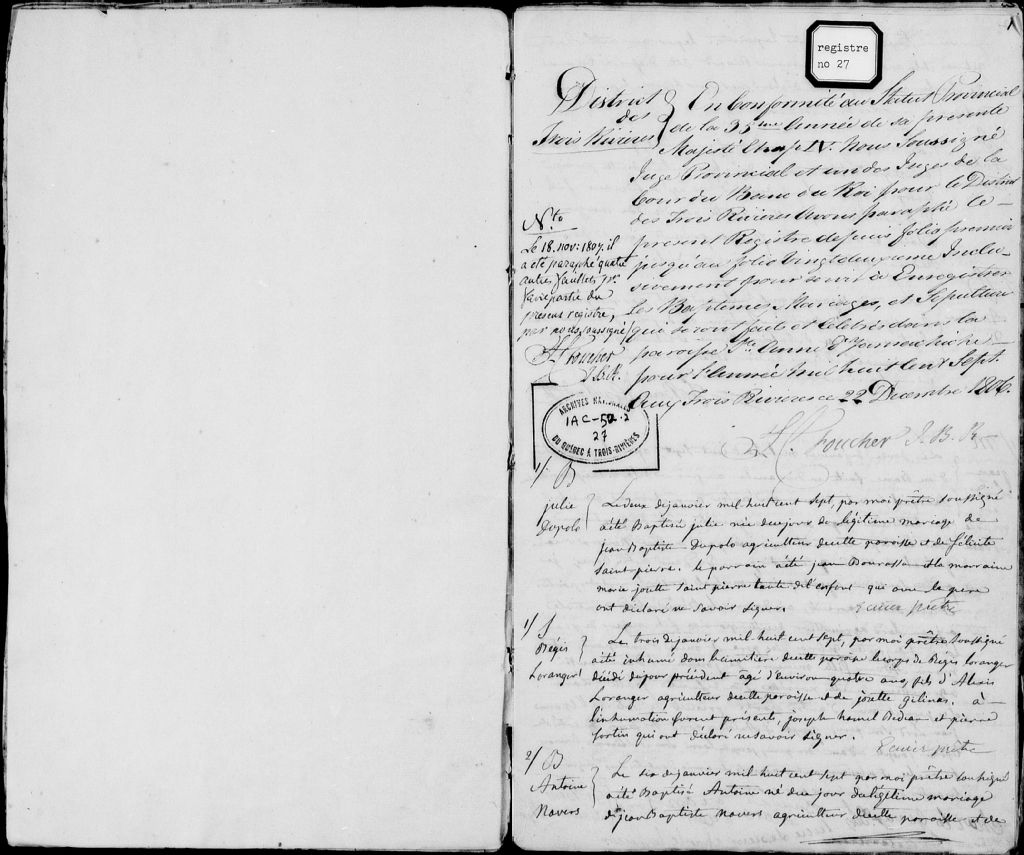 1
registre
no 27
District des Trois Rivières
En Conformité au Statut Provincial
de la 35eme Année de sa presente
Majesté Chap IV. Nous Soussigné
Juge Provincial et un des Juges de la
Cour du Banc du Roi pour le District
des Trois Rivieres Avons paraphé le
present Registre depuis folio premier
jusqu'au folio Vingt deuxieme Inclu-
sivement pour servir à Enregistrer
les Baptêmes Mariages, et Sepultures
qui seront faits et Célébrés dans la
paroisse Ste Anne d'Yamachiche
pour l'Année mil huit Cent Sept.
Aux Trois Rivieres ce 22 Decembre 1806.
Nta
Le 18. nov: 1807. il
a été paraphé quatre
autres feuillets pr.
faire partie du
présent registre,
par nous soussigné
ARCHIVES NATIONALES
1AC-52-2
27
DU QUÉBEC À TROIS-RIVIÈRES
J. B. R.
1/ B
julie
Dupolo
Le deux de janvier mil huit cent sept, par moi prêtre soussigné
a été Baptisé julie née de ce jour de légitime mariage de
jean Baptiste Dupolo agriculteur de cette paroisse et de félicité
saint pierre. le parrain a été jean Bourassa et la marraine
marie josette saint pierre tante de l'enfant qui avec le pere
ont déclaré ne savoir signer. Ecuier prêtre
1/ S
Régis
Loranger
Le trois de janvier mil huit cent sept, par moi prêtre soussigné
a été inhumé dans le cimetière de cette paroisse le corps de Régis loranger
décédé du jour précédent âgé d'environ quatre ans, fils d'Alexis
Loranger agriculteur de cette paroisse et de josette gelinas. à
l'inhumation furent présents, joseph hamel Bedeau et pierre
fortin qui ont déclaré ne savoir signer.
Ecuier prêtre
2/ B
Antoine
Navers
Le six de janvier mil huit cent sept par moi prêtre soussigné
a été Baptisé Antoine né du jour du légitime mariage
de jean Baptiste navers agriculteur de cette paroisse et de